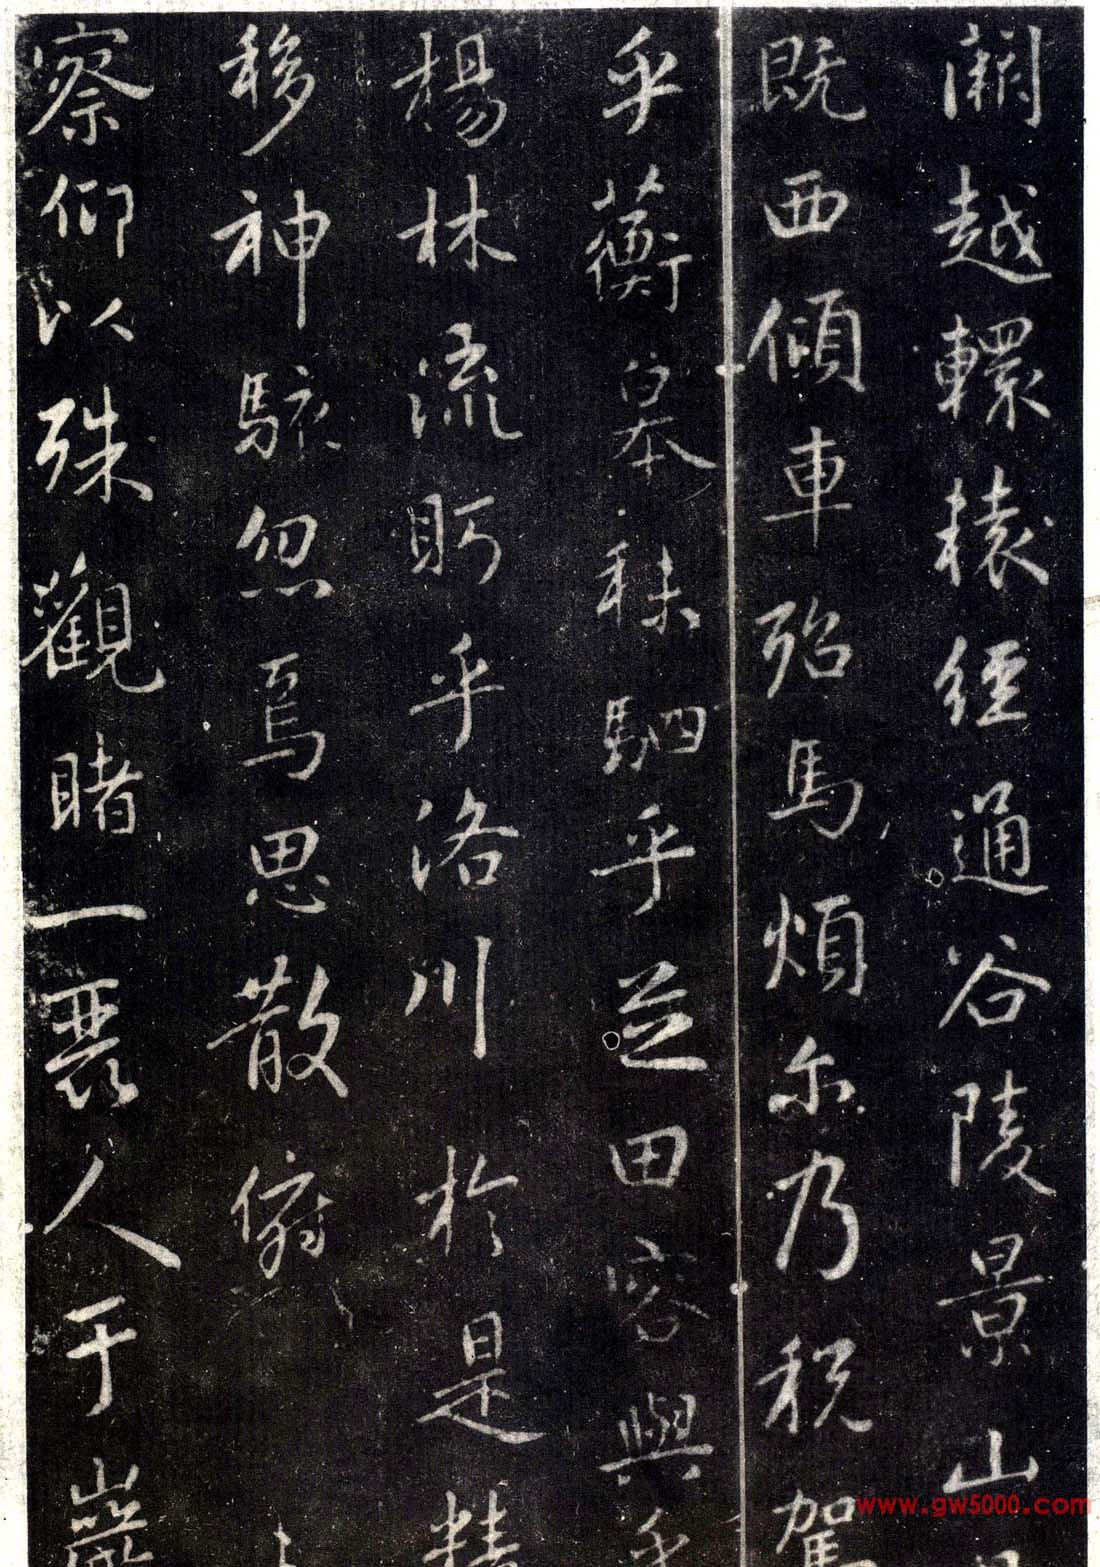 闕越轘轅經通谷陵景山
既西傾車殆馬煩尔乃税駕
乎蘅皋秣駟乎芝田容與乎
楊林流眄乎洛川於是精
移神駭忽焉思散俯
察仰以殊觀睹一麗人于巖
www.gw5000.com